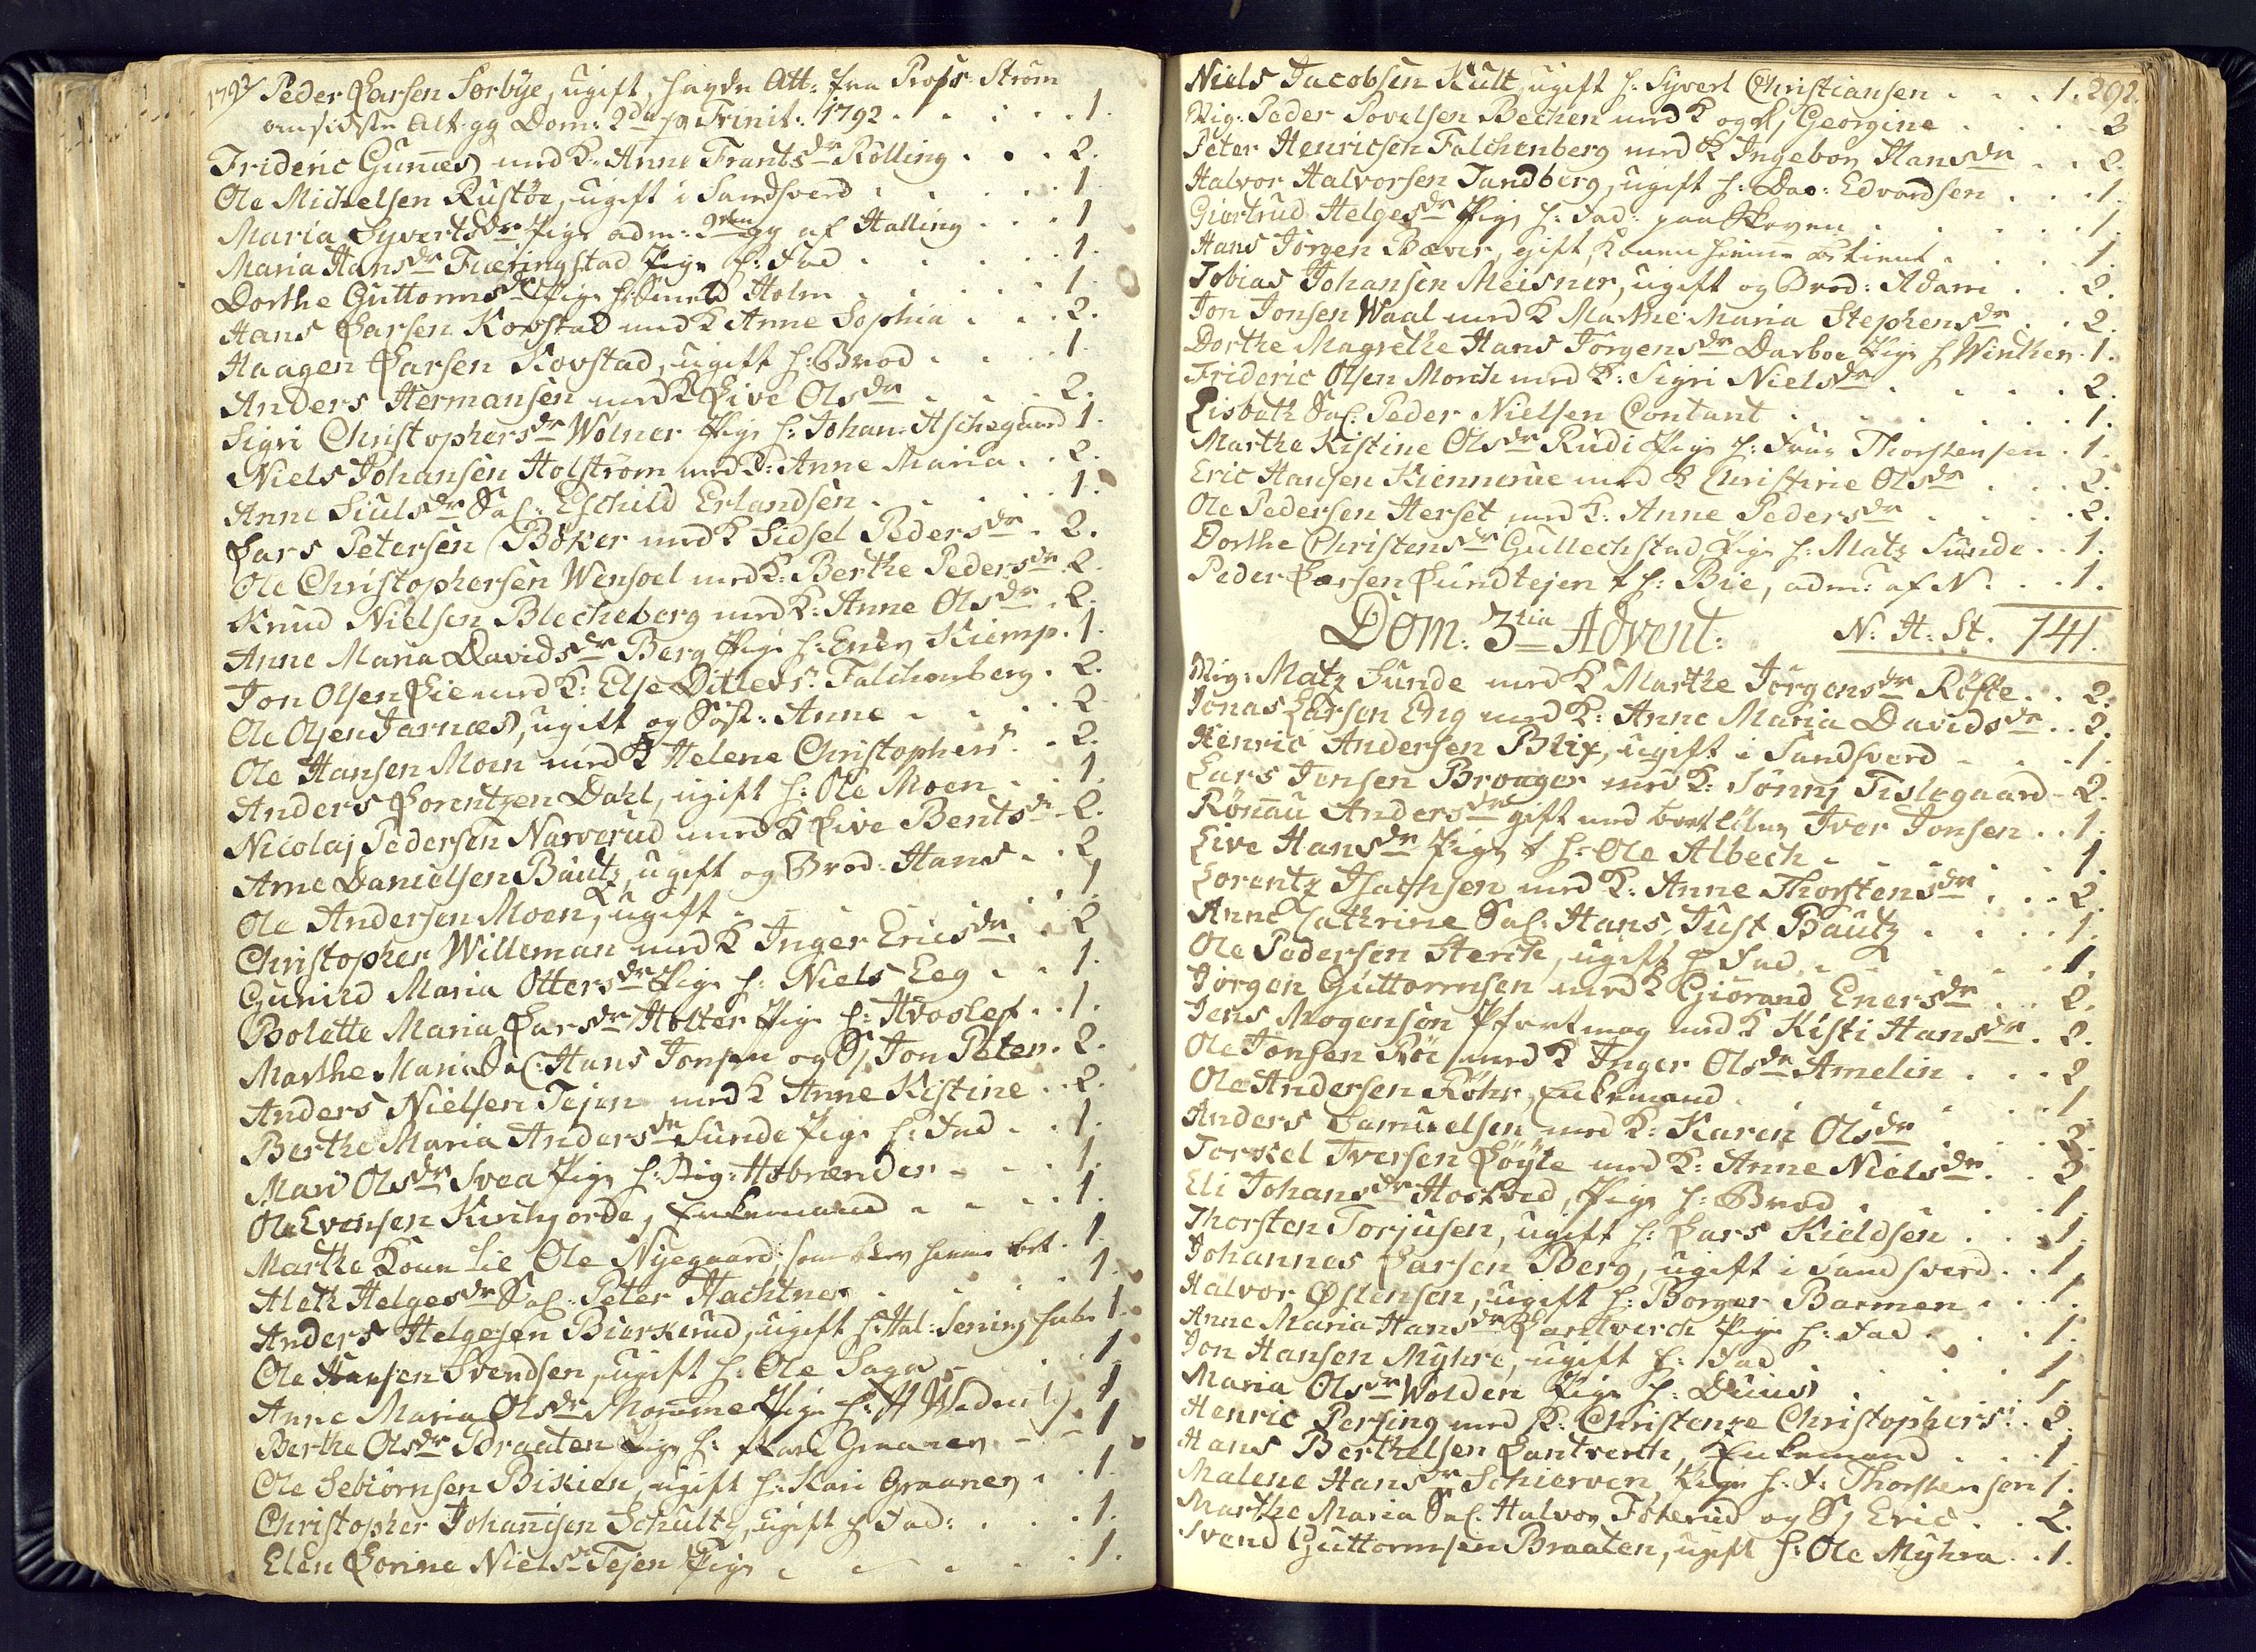 1792/ Peder Larsen Sørbÿe, ugift, havde Att: fra Profs Strøm
om sidste Alt: gg Dom: 2da p Trinit: 1792 . . . . 1.
Frideric Gunnes med K: Anne Frants dr Rölling . . . 2.
Ole Michelsen Rustöe, ugift i Sandsverd . . . . 1.
Maria Syverts dr Pige adm: 2den gg af Halling . . . 1
Maria Hans dr Færingstad Pige h: Fad . . . . 1.
Dorthe Guttorms dr Pige h: Holm . . . . 1.
Hans Larsen Kovstad med K Anne Sophia . . . 2.
Haagen Larsen Kovstad, ugift h: Brod . . . . 1.
Anders Hermansen med K Live Ols dr . . . 2.
Sigri Christophers dr Wölner Pige h: Johan Aschegaard 1.
Niels Johansen Holström med K: Anne Maria . . 2.
Anne Siuls dr Sal: Eschild Erlandsen . . . . 1.
Lars Petersen Böker med K Sidsel Peders dr . 2.
Ole Christophersen Wensoel med K: Berthe Peders dr 2.
Knud Nielsen Blecheberg med K: Anne Ols dr . 2.
Anne Maria Davids dr Berg Pige h: Enev Kiemp . 1.
Jon Olsen Lie med K: Else Ditlevs: Falchenberg . 2.
Ole Olsen Jarnæs, ugift og Søst: Anne . . . . 2
Ole Hansen Moen med K Helene Christophers: . 2.
Anders Lorentzen Dahl, ugift h: Ole Moen . . 1.
Nicolaj Pedersen Narverud med K Live Bents dr 2.
Arne Danielsen Bautz, ugift og Brod: Hans . . 2
Ole Andersen Moen, ugift . . . . 1
Christopher Willeman med K Inger Erics dr . . 2
Gunild Maria Otters dr Pige h: Niels Eeg . . 1.
Bolette Maria Lars dr Holter Pige h: Hvoslef . . 1.
Marthe Maria Sal: Hans Jonsen og S, Jon Peter . 2.
Anders Nielsen Tejen med K Anne Kistine . . 2.
Berthe Maria Anders dr Sunde Pige h: Fad . . 1.
Mari Ols dr Svea Pige h: Sig: Hobrænder . . . 1.
Ole Evensen Kirchjorde, Enkemand . . . . 1.
Marthe Koun Lie Ole Nÿegaard, som blev hiemme 1.
Aleth Helges dr Sal: Peter Hachtner . . . . 1.
Anders Helgesen Biorkerud, ugift h: Hal: 1.
Ole Hansen Svendsen, ugift h: Ole Saga . . . 1.
Anne Maria Ols dr Momme Pige h: 1
Berthe Ols dr Braaten Pige h: Kari Graaner . . 1
Ole Sebiörnsen Bikien, ugift h: Kari Graaner . . 1.
Christopher Johannsen Schultz, ugift h Fad: . . . 1.
Elen Lorine Niels dr Tejen Pige . . . . 1.
Niels Jacobsen Kult, ugift h: Syvert Christiansen . . . 1. 292.
Sig: Peder Povelsen Bechen med K og S, Georgine . . . 3
Peter Henricsen Falchenberg med K Ingebor Hans dr . . 2.
Halvor Halvorsen Sandberg, ugift h: Dav: Edvardsen . . . 1.
Giertrud Helges dr Pige h: Fad: paa . . . . 1.
Hans Jörgen Bæver, gift, Konen hiemme . . . 1
Tobias Johansen Meisner, ugift og Brod: Adam . . 2.
Jon Jonsen Waal med K Marthe Maria Stephens dr . . 2.
Dorthe Magrethe Hans Jörgens dr Darboe Pige h Winther . 1.
Frideric Olsen Morch med K: Sigri Niels dr . . . . 2.
Lisbeth Sal: Peder Nielsen Contant . . . . . 1.
Marthe Kistine Ols dr Rudi Pige h: Frue Thorstensen . 1.
Eric Hansen Kiennerue med K Christine Ols dr . . . 2.
Ole Pedersen Herset med K: Anne Peders dr . . . . 2.
Dorthe Christens dr Gullechstad Pige h: Matz Sunde . . 1.
Peder Larsen Lundtejen h: Bie, adm: af N: . . . 1.
Dom: 3tia Advent: N. H. St. 141.
Mig: Matz Sunde med K Marthe Jörgens dr Röste . . 2.
Jonas Larsen Eng med K: Anne Maria Davids dr . . 2.
Henric Andersen Blix, ugift i Sandsverd . . . 1.
Lars Jensen Broager med K: Sönnj Tislegaard . 2.
Rönnau Anders dr gift med Iver Jonsen . . 1.
Live Hans dr Pige h: Ole Albech . . . . 1.
Lorentz Isachsen med K: Anne Thorstens dr . . . 2.
Anne Cathrine Sal: Hans Just Bautz . . . . 1.
Ole Pedersen Sterch, ugift h Fad . . . . . 1.
Jörgen Guttormsen med K Giörand Eners dr . . 2.
Jens Mogensen med K Kisti Hans dr . 2.
Ole Jonsen Röe med K Inger Ols dr Amelin . . . 2
Ole Andersen Röhr, Enkemand . . . . . 1
Anders Samuelsen med K: Karen Ols dr . . . . 2.
Torkel Iversen Löÿte med K: Anne Niels dr . . 2
Eli Johans dr Pige h: Brod . . . . 1.
Thorsten Torjusen, ugift h: Lars Kieldsen . . . 1.
Johannes Larsen Berg, ugift i Sandsverd . . 1
Halvor Østensen, ugift h: Borger Barmen . . . 1.
Anne Maria Hans dr Lantverch Pige h: Fad . . . 1.
Jon Hansen Mÿhre, ugift h: Fad . . . . 1
Maria Ols dr Wolden Pige h: Duus . . . . 1.
Henric Persing med K: Christenze Christophers: . 2.
Hans Berthelsen Lantverch, Enkemand . . . 1
Malene Hans dr Schierven Pige h: F: Thorstensen 1.
Marthe Maria Sal: Halvor Föterud og S, Eric . . 2.
Svend Guttormsen Braaten, ugift h: Ole Mÿhra . . 1.